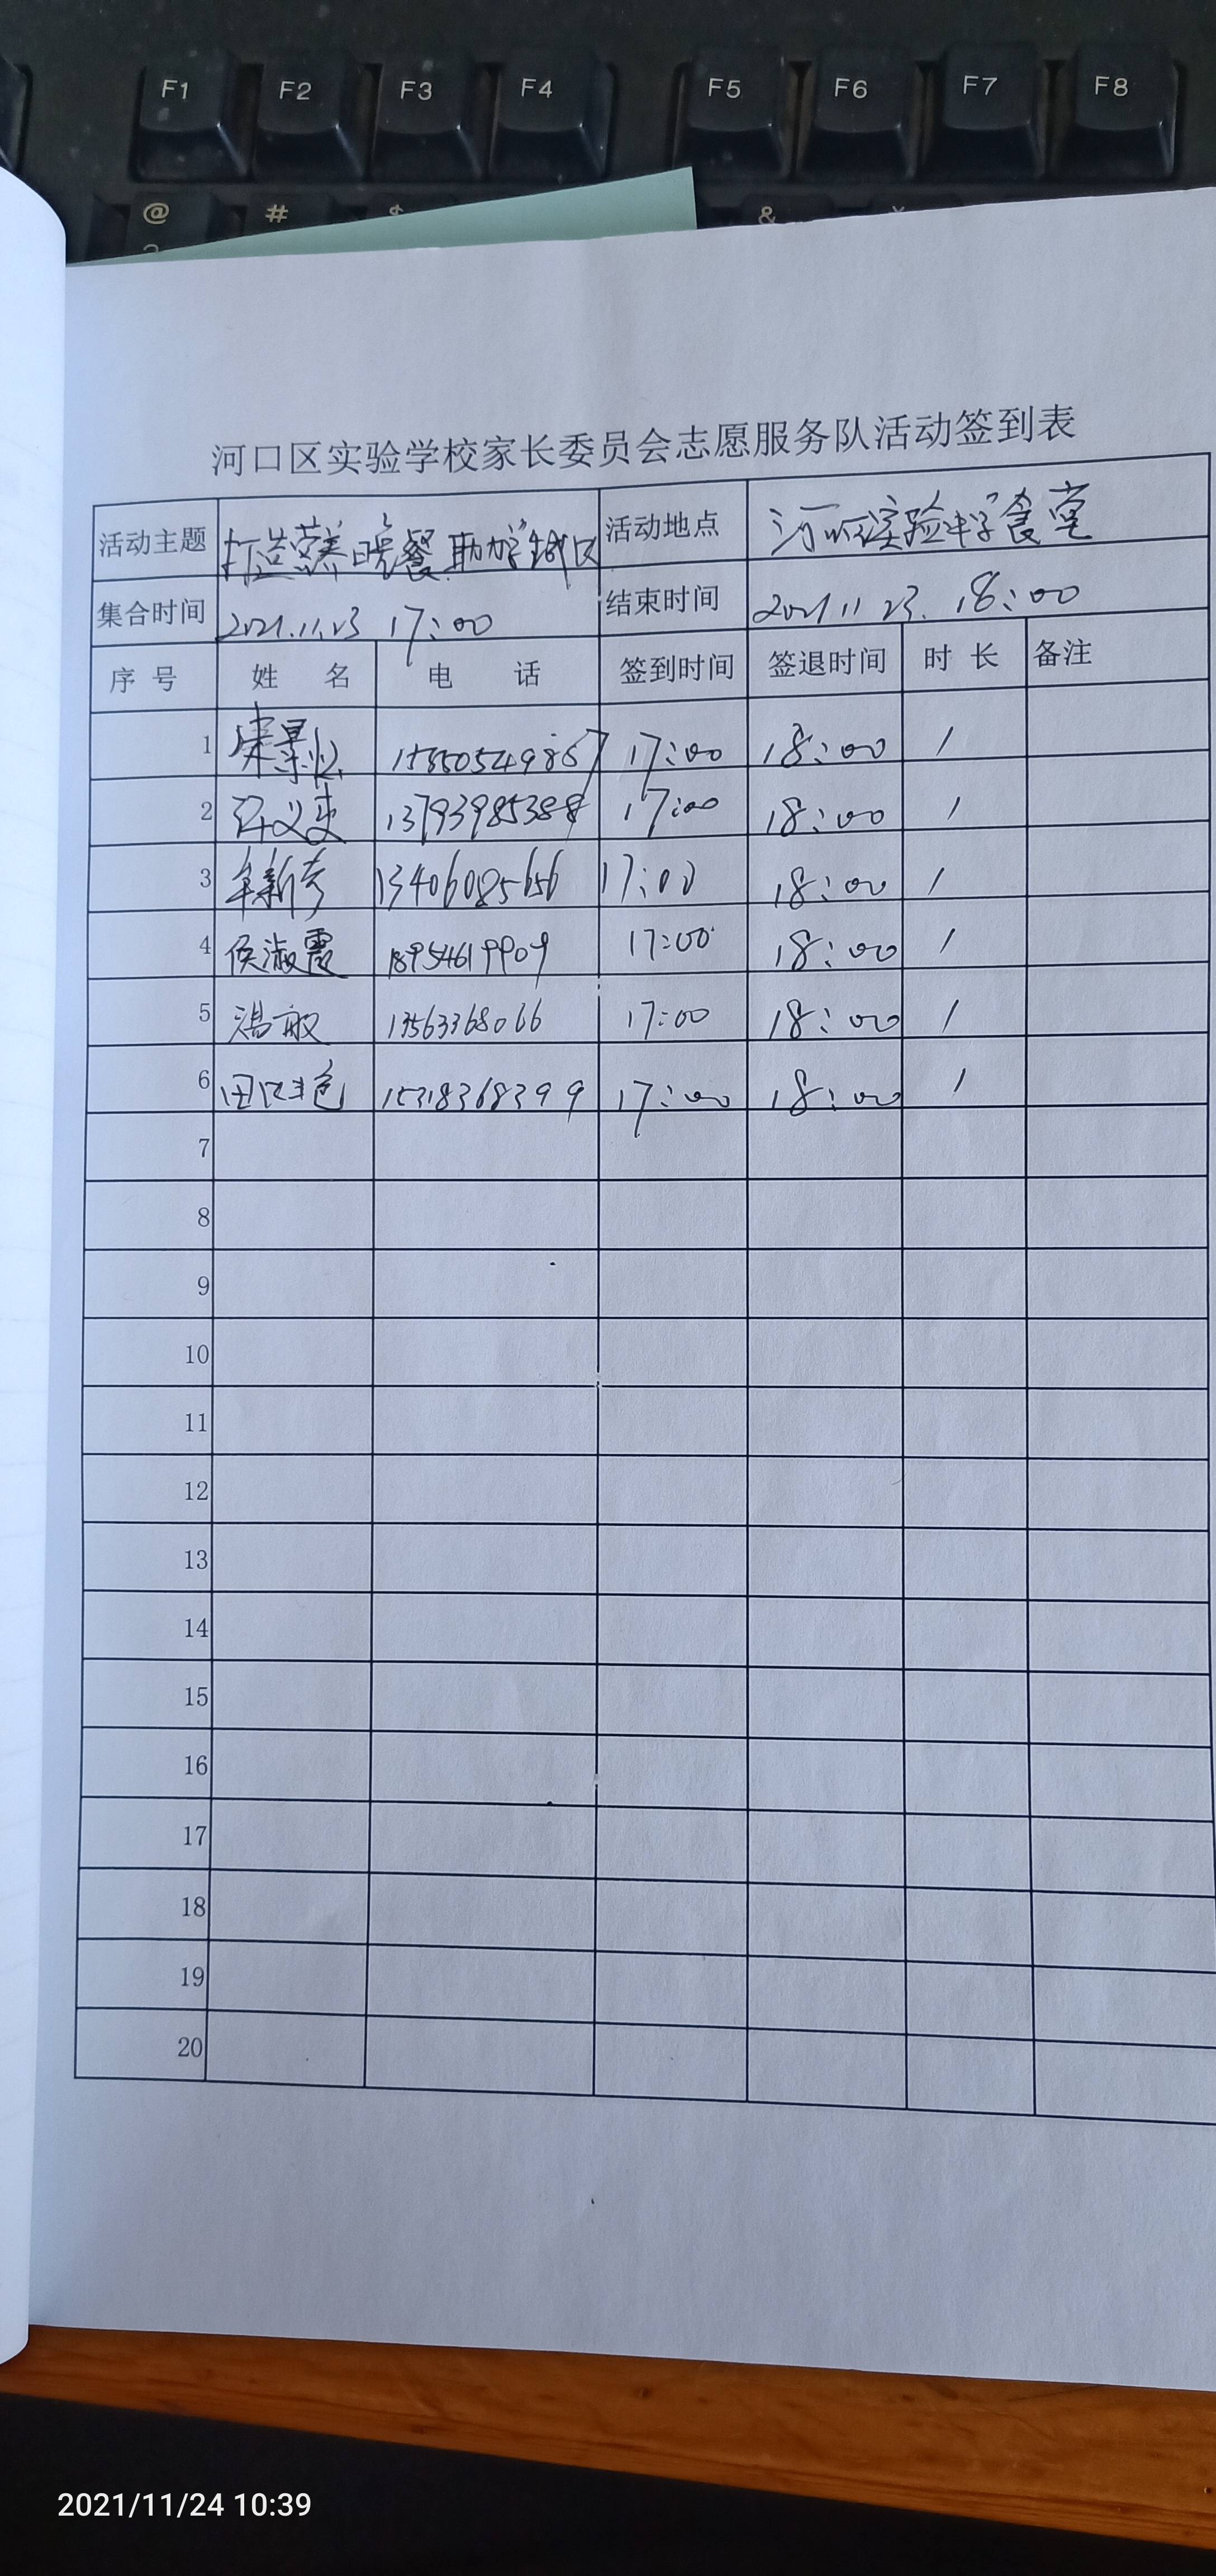 F1 F2 F3 F4 F5 F6 F7 F8
@ # $ &
河口区实验学校家长委员会志愿服务队活动签到表
活动主题 打造营养晚餐 助力 活动地点 河口区实验学食堂
集合时间 2021.11.23 17:00 结束时间 2021.11.23. 18:00
序号 姓名 电话 签到时间 签退时间 时长 备注
1 宋景 15550549867 17:00 18:00 1
2 许义 13793985388 17:00 18:00 1
3 牟新芳 13406085656 17:00 18:00 1
4 侯淑霞 18954619909 17:00 18:00 1
5 温敏 13563368066 17:00 18:00 1
6 田 15318368399 17:00 18:00 1
7
8
9
10
11
12
13
14
15
16
17
18
19
20
2021/11/24 10:39